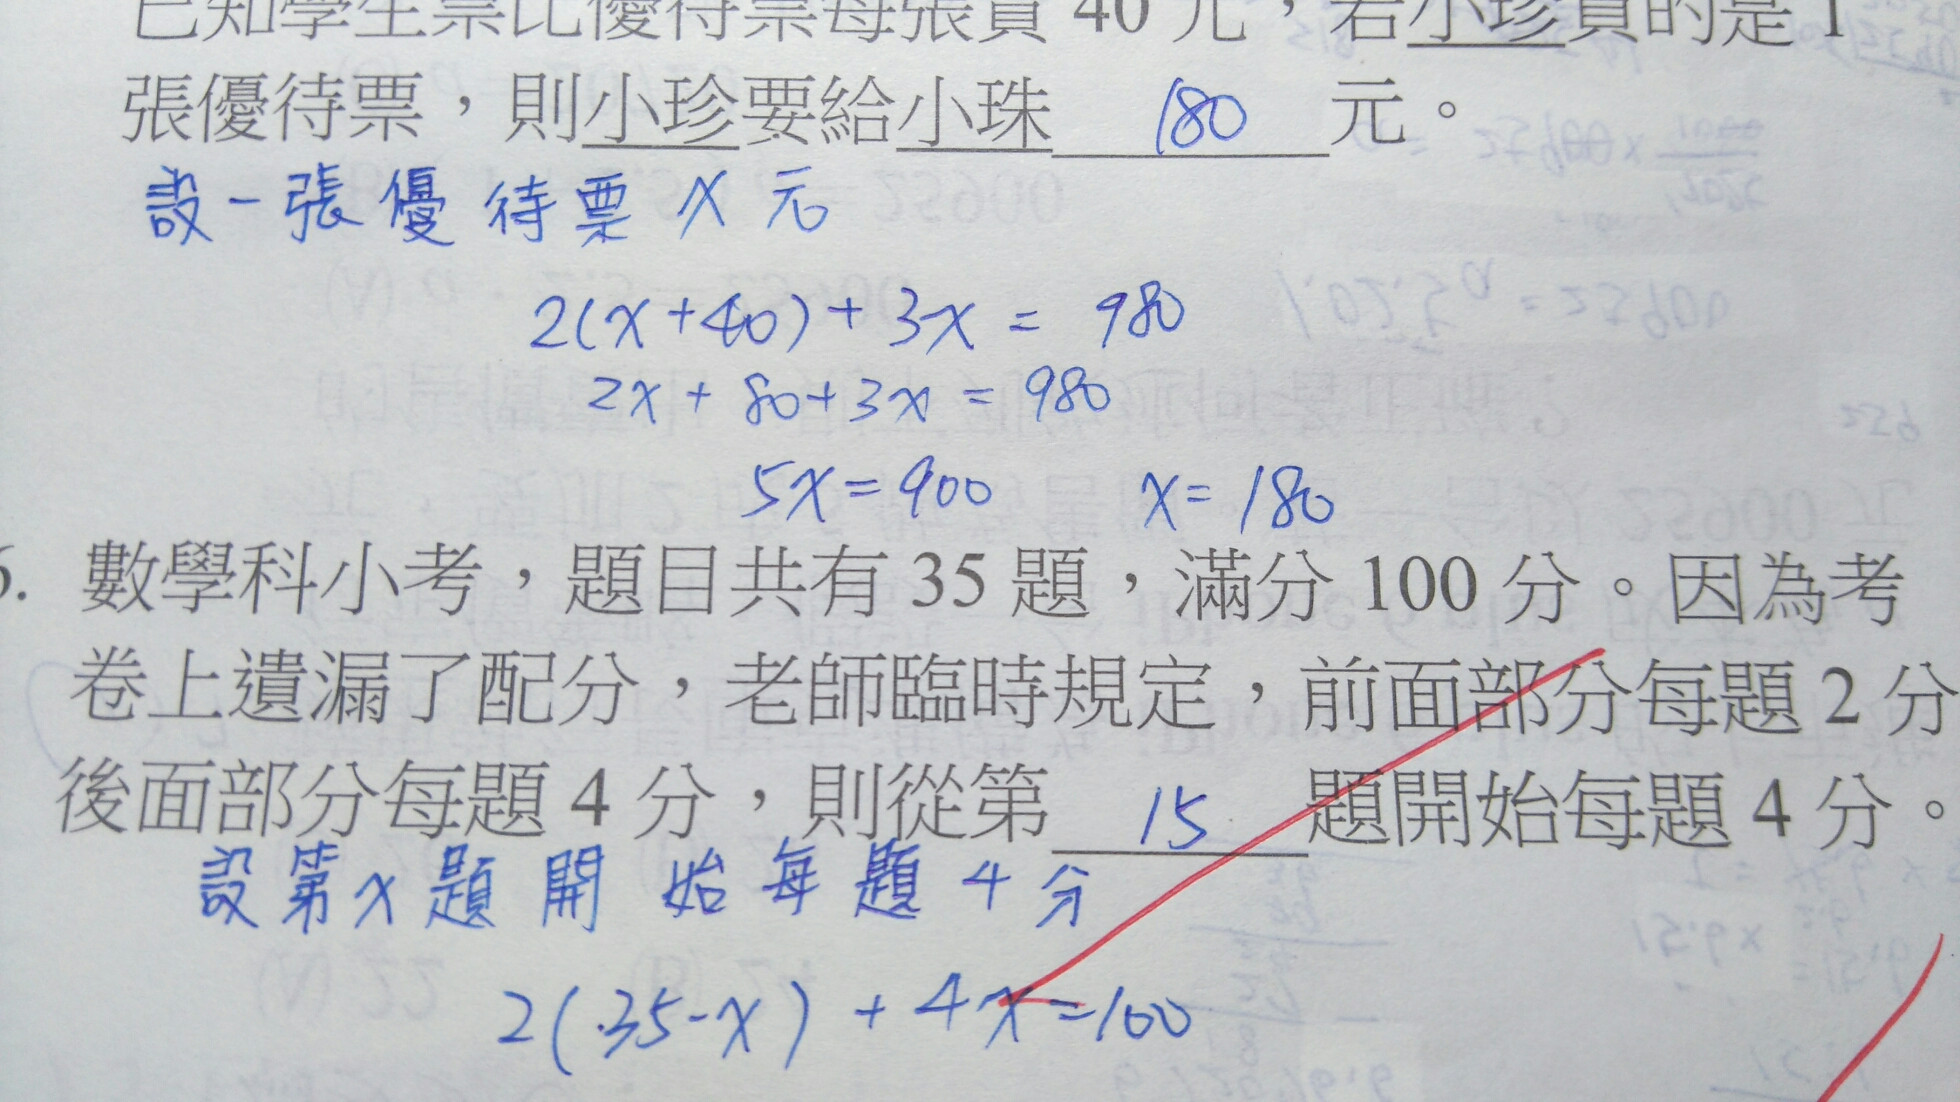 已知學生票比優待票每張貴 40 元，若小珍買的是 1
張優待票，則小珍要給小珠 180 元。
設一張優待票 x 元
2(x+40)+3x = 980
2x + 80+3x = 980
5x = 900 x = 180
6. 數學科小考，題目共有 35 題，滿分 100 分。因為考
卷上遺漏了配分，老師臨時規定，前面部分每題 2 分
後面部分每題 4 分，則從第 15 題開始每題 4 分。
設第 x 題開始每題 4 分
2(35-x) + 4x = 100